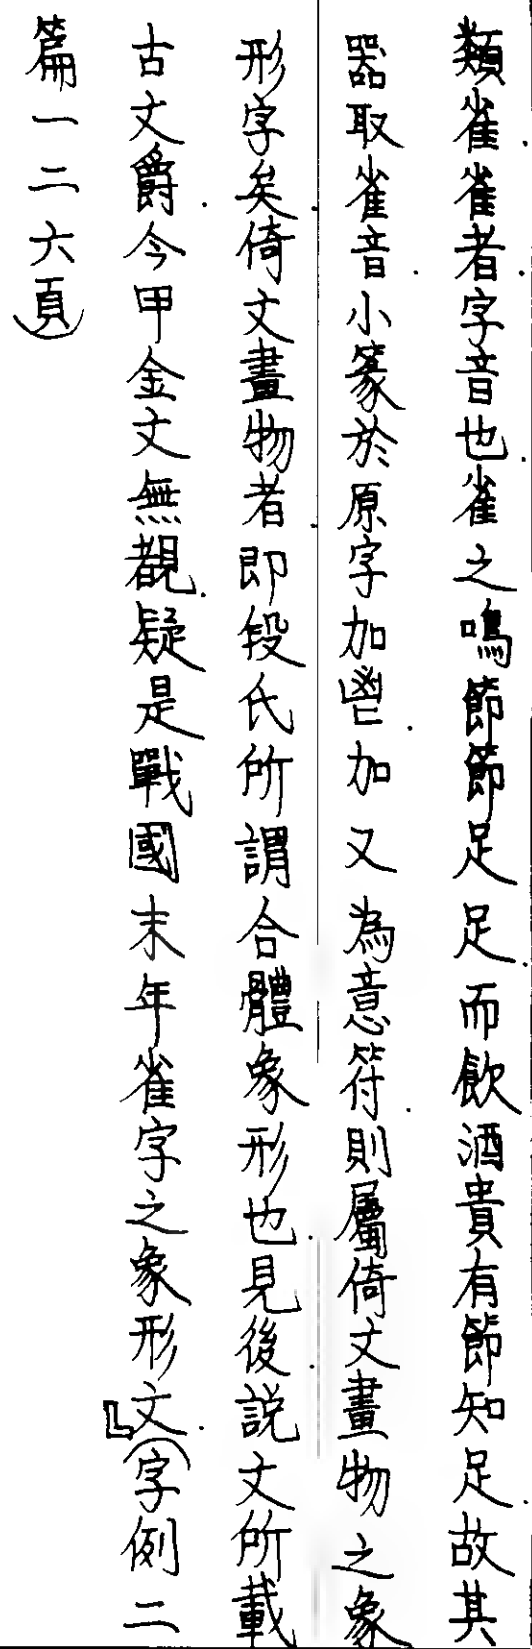 類雀.雀者字音也.雀之鳴節節足足.而飲酒貴有節知足.故其
器取雀音.小篆於原字加鬯.加又為意符.則屬倚文畫物之象
形字矣.倚文畫物者.即段氏所謂合體象形也.見後.説文所載
古文爵.今甲金文無覩.疑是戰國末年雀字之象形文.』(字例二
篇一二六頁)